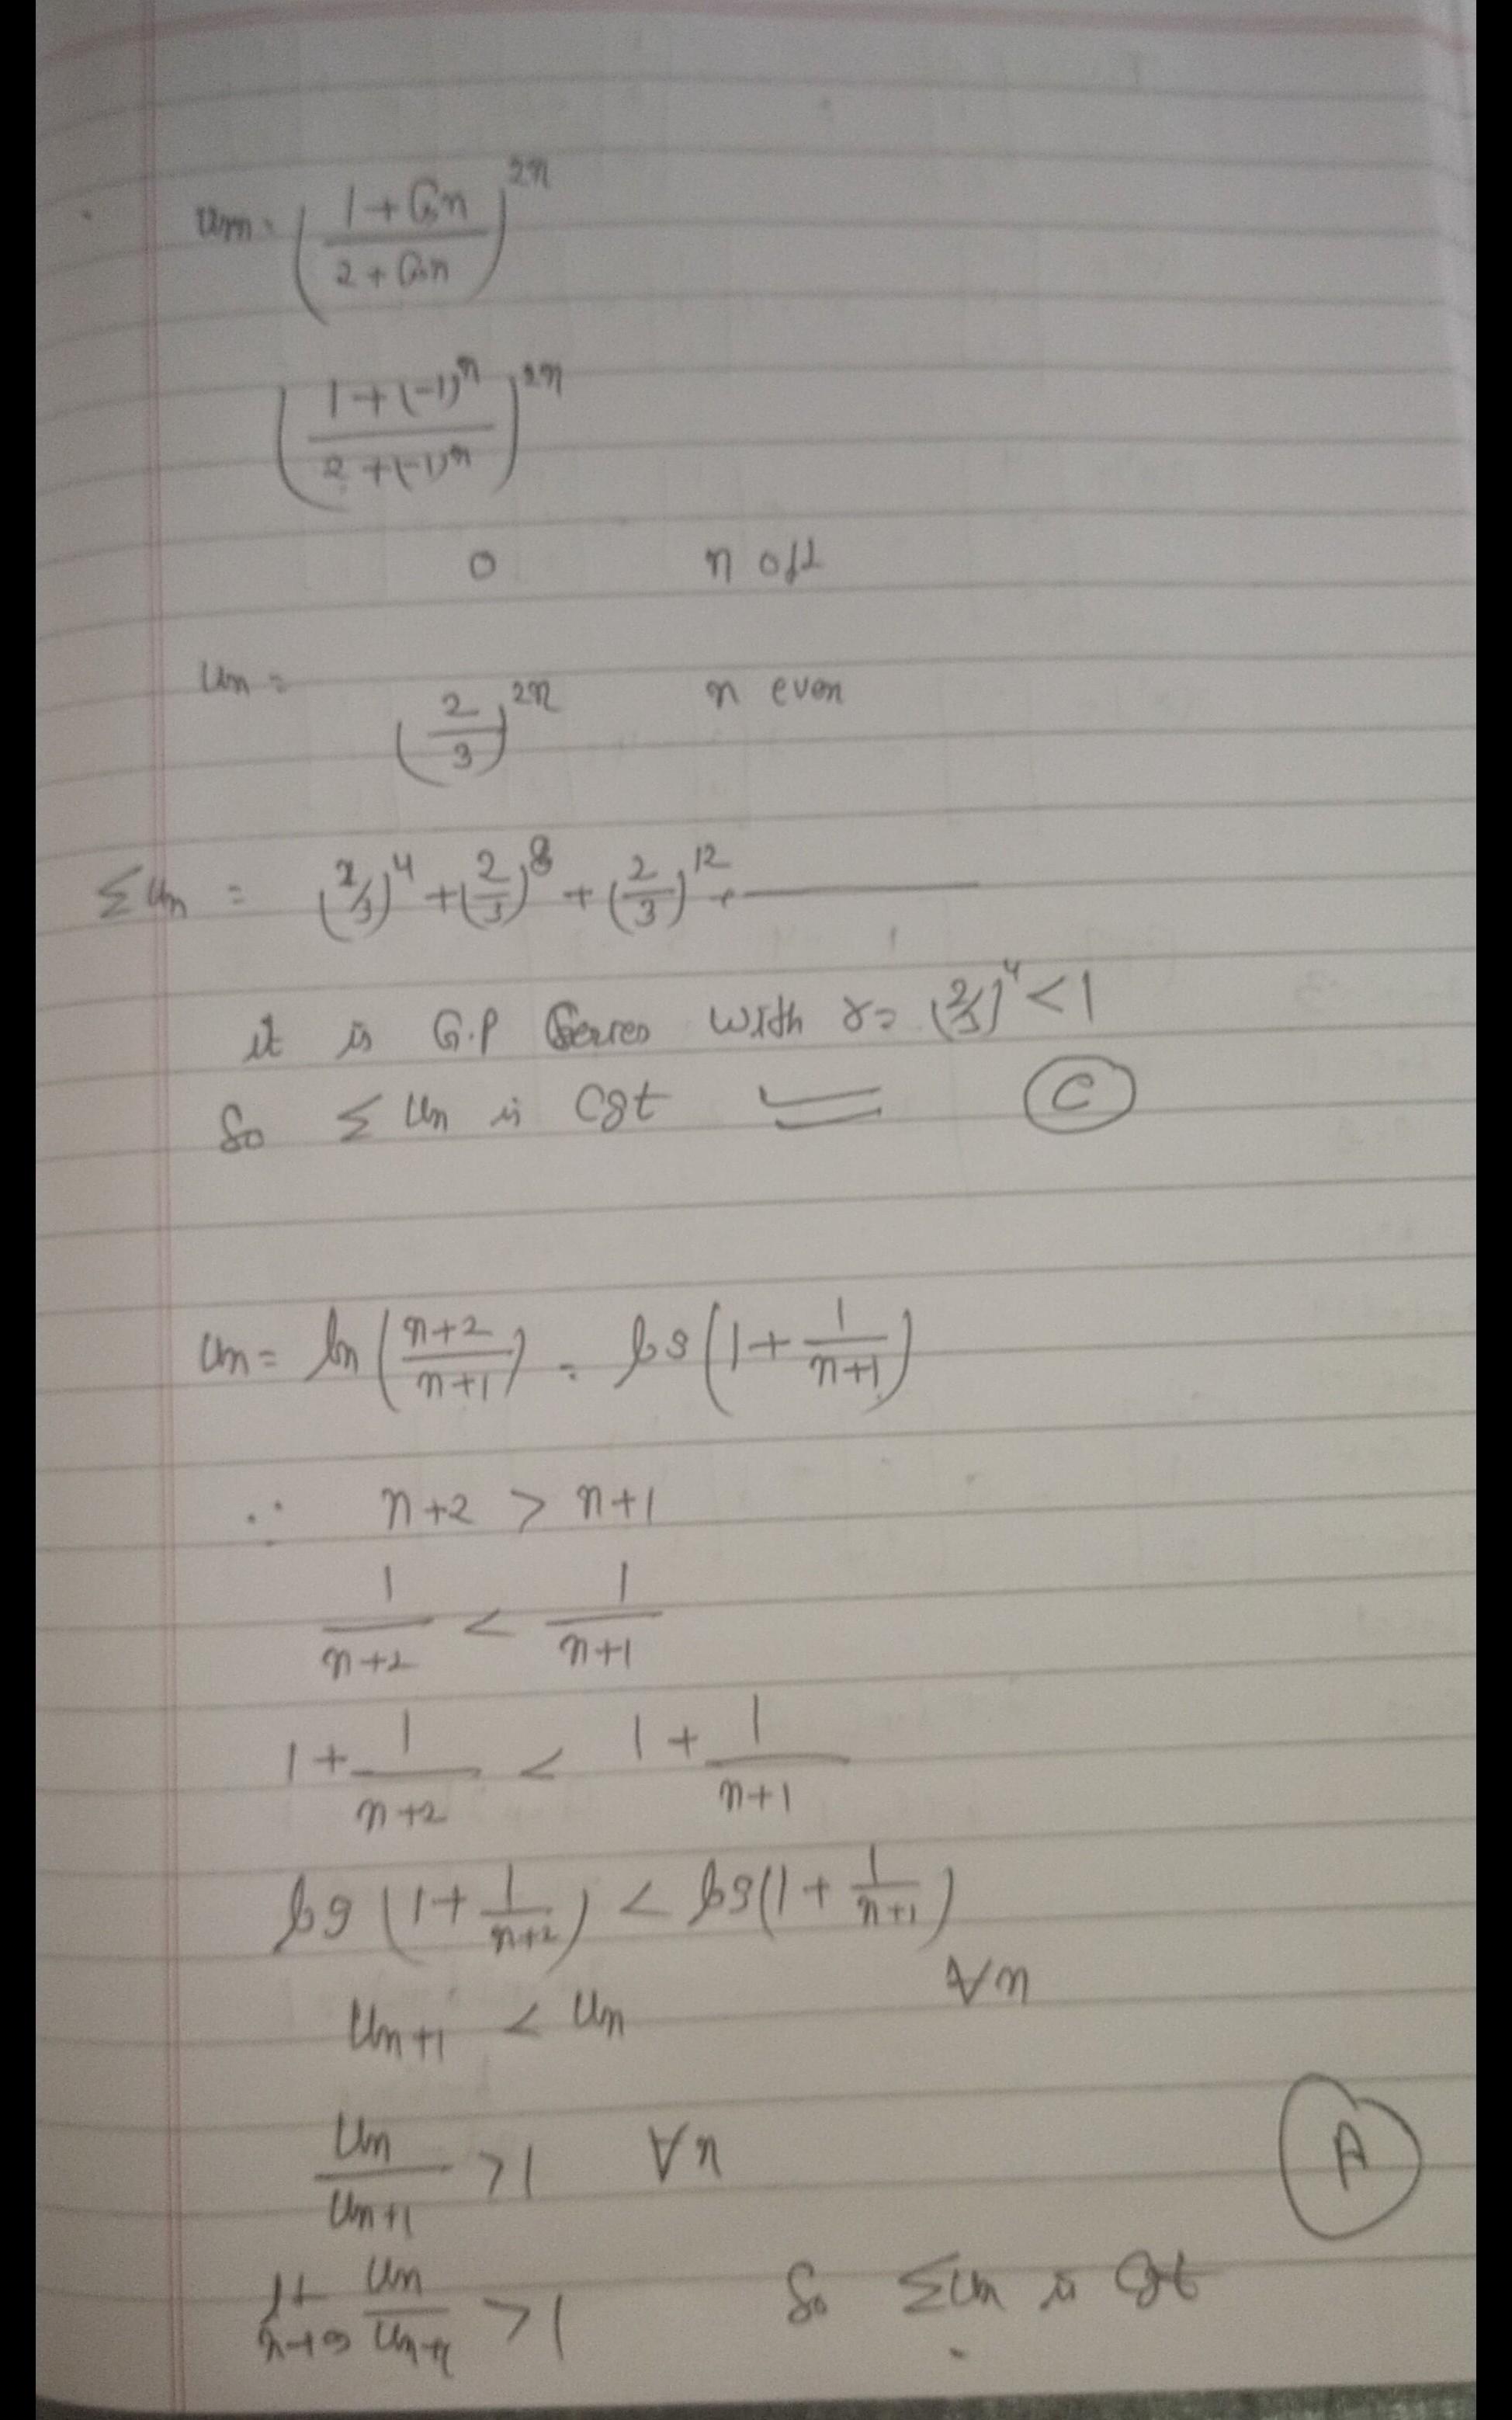 Un = ( (1 + Cos n) / (2 + Cos n) )^2n
( (1 + (-1)^n) / (2 + (-1)^n) )^2n
0 n odd
Un =
(2/3)^2n n even
Σ Un = (2/3)^4 + (2/3)^8 + (2/3)^12 + ———
it is G.P Series with r = (2/3)^4 < 1
So Σ Un is Cgt C
Un = ln ( (n+2) / (n+1) ) = log ( 1 + 1/(n+1) )
∵ n+2 > n+1
1/(n+2) < 1/(n+1)
1 + 1/(n+2) < 1 + 1/(n+1)
log (1 + 1/(n+2)) < log (1 + 1/(n+1))
∀n
Un+1 < Un
Un / Un+1 > 1 ∀n
A
lt n→∞ Un / Un+1 > 1 So ΣUn is Cgt